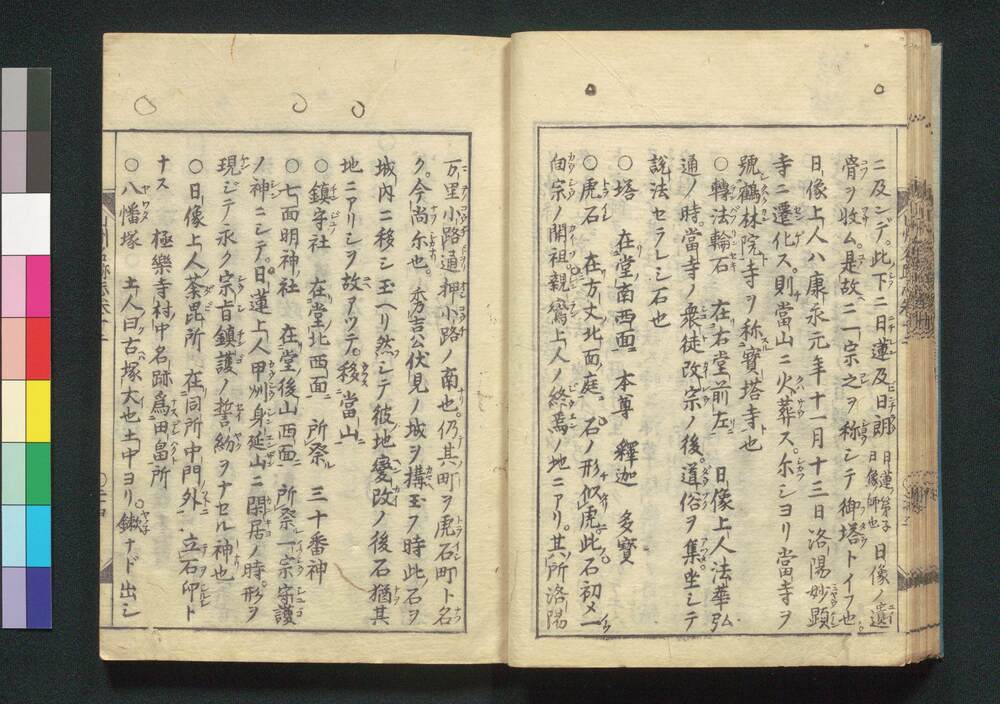 ニ及ンデ。此下ニ日蓮及日朗日蓮弟子日像師也日像ノ遺
骨ヲ收ム。是故ニ一宗之ヲ称シテ御塔トイフ也。
日像上人ハ康永元年十一月十三日洛陽妙顕
寺ニ遷化ス。則當山ニ火葬ス。尓シヨリ當寺ヲ
號鶴林院寺ヲ称寳塔寺ト也
○轉法輪石 在右堂前左 日像上人法華弘
通ノ時。當寺ノ衆徒改宗ノ後。道俗ヲ集坐シテ
說法セラレシ石也
○塔 在堂南西面 本尊 釋迦 多寳
○虎石 在方丈北面庭 石ノ形似虎。此石初メ一
向宗ノ開祖親鸞上人ノ終焉ノ地ニアリ。其所洛陽
万里小路通押小路ノ南也。仍其町ヲ虎石町ト名
ク。今尚尓也。秀吉公伏見ノ城ヲ搆玉フ時此石ヲ
城内ニ移シ玉ヘリ然シテ彼地變改ノ後石猶其
地ニアリシヲ故アツテ。移當山
○鎮守社 在堂北西面 所祭 三十番神
○七面明神社 在堂後山西面 所祭一宗守護
ノ神ニシテ。日蓮上人甲州身延山ニ閑居ノ時。形ヲ
現ジテ永ク宗旨鎮護ノ誓約ヲナセル神也
○日像上人荼毘所 在同所中門外 立石印ト
ナス 極樂寺村中名跡爲田畠所
○八幡塚 土人曰古塚大也土中ヨリ。鏃ナド出シ